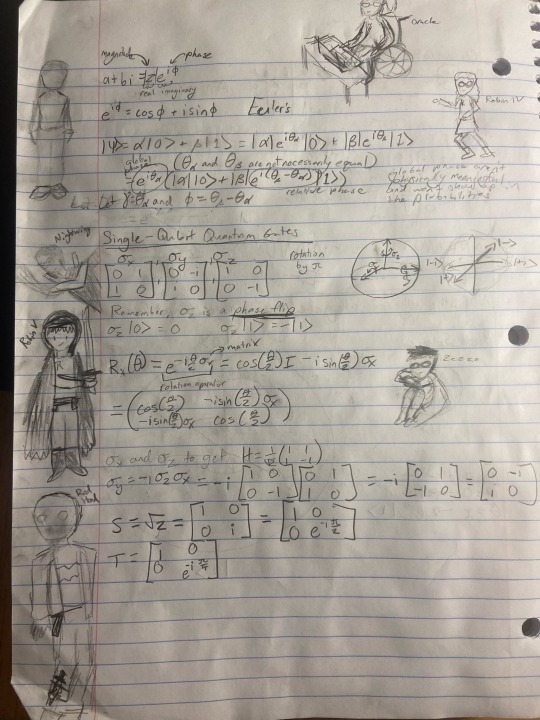 oracle
magnitude phase
a+bi = |z|e^{iϕ}
real imaginary
e^{iϕ} = cosϕ + i sinϕ Euler's
Robin IV
|Ψ⟩ = α|0⟩ + β|1⟩ = |α|e^{iθ_α}|0⟩ + |β|e^{iθ_β}|1⟩
global phase (θ_α and θ_β are not necessarily equal)
= e^{iθ_α}(|α||0⟩ + |β|e^{i(θ_β-θ_α)}|1⟩)
relative phase
global phase aren't physically meaningful
the probabilities
Let γ = θ_α and ϕ = θ_β - θ_α
Single-Qubit Quantum Gates
Nightwing
σ_x σ_y σ_z
[0 1; 1 0], [0 -i; i 0], [1 0; 0 -1] rotation by π
|-⟩ |+⟩
Remember, σ_z is a phase flip
σ_z|0⟩ = 0 σ_z|1⟩ = -|1⟩
Robin V
R
matrix
R_x(θ) = e^{-i θ/2 σ_y} = cos(θ/2) I - i sin(θ/2) σ_x
rotation operator
= (cos(θ/2) -i sin(θ/2)σ_x; -i sin(θ/2)σ_x cos(θ/2))
Zzzzz
σ_x and σ_z to get H = 1/√2 (1 1; 1 -1)
σ_y = -i σ_z σ_x = -i [1 0; 0 -1] [0 1; 1 0] = -i [0 1; -1 0] = [0 -i; 1 0]
Red Hood
S = √z = [1 0; 0 i] = [1 0; 0 e^{-i π/2}]
T = [1 0; 0 e^{-i π/4}]